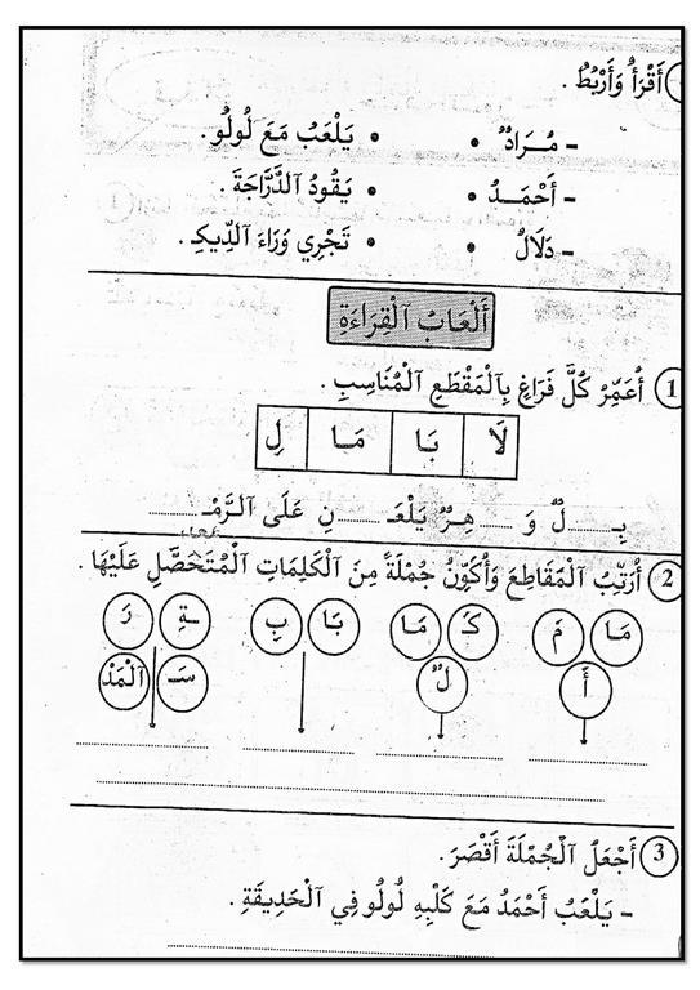 أَقْرَأُ وَأَرْبُطُ .
- مُــرَادٌ • • يَلْعَبُ مَعَ لُولُو .
- أَحْمَــدُ • • يَقُودُ ٱلدَّرَّاجَةَ .
- دَلَالُ • • تَجْرِي وَرَاءَ ٱلدِّيكِ .
أَلْعَابُ ٱلْقِرَاءَةِ
1 أُعَمِّرُ كُلَّ فَرَاغٍ بِٱلْمَقْطَعِ ٱلْمُنَاسِبِ .
لَا بَا مَا لِ
بِـ........لٌ وَ ........ هِرٌّ يَلْعَـ........نِ عَلَى ٱلرَّمْـ........
2 أُرَتِّبُ ٱلْمَقَاطِعَ وَأُكَوِّنُ جُمْلَةً مِنَ ٱلْكَلِمَاتِ ٱلْمُتَحَصَّلِ عَلَيْهَا .
مَا مَ كَـ مَا بَا بِ ـةِ رَ
أَ لٌ سَـ ٱلْمَدْ
3 أَجْعَلُ ٱلْجُمْلَةَ أَقْصَرَ .
- يَلْعَبُ أَحْمَدُ مَعَ كَلْبِهِ لُولُو فِي ٱلْحَدِيقَةِ .